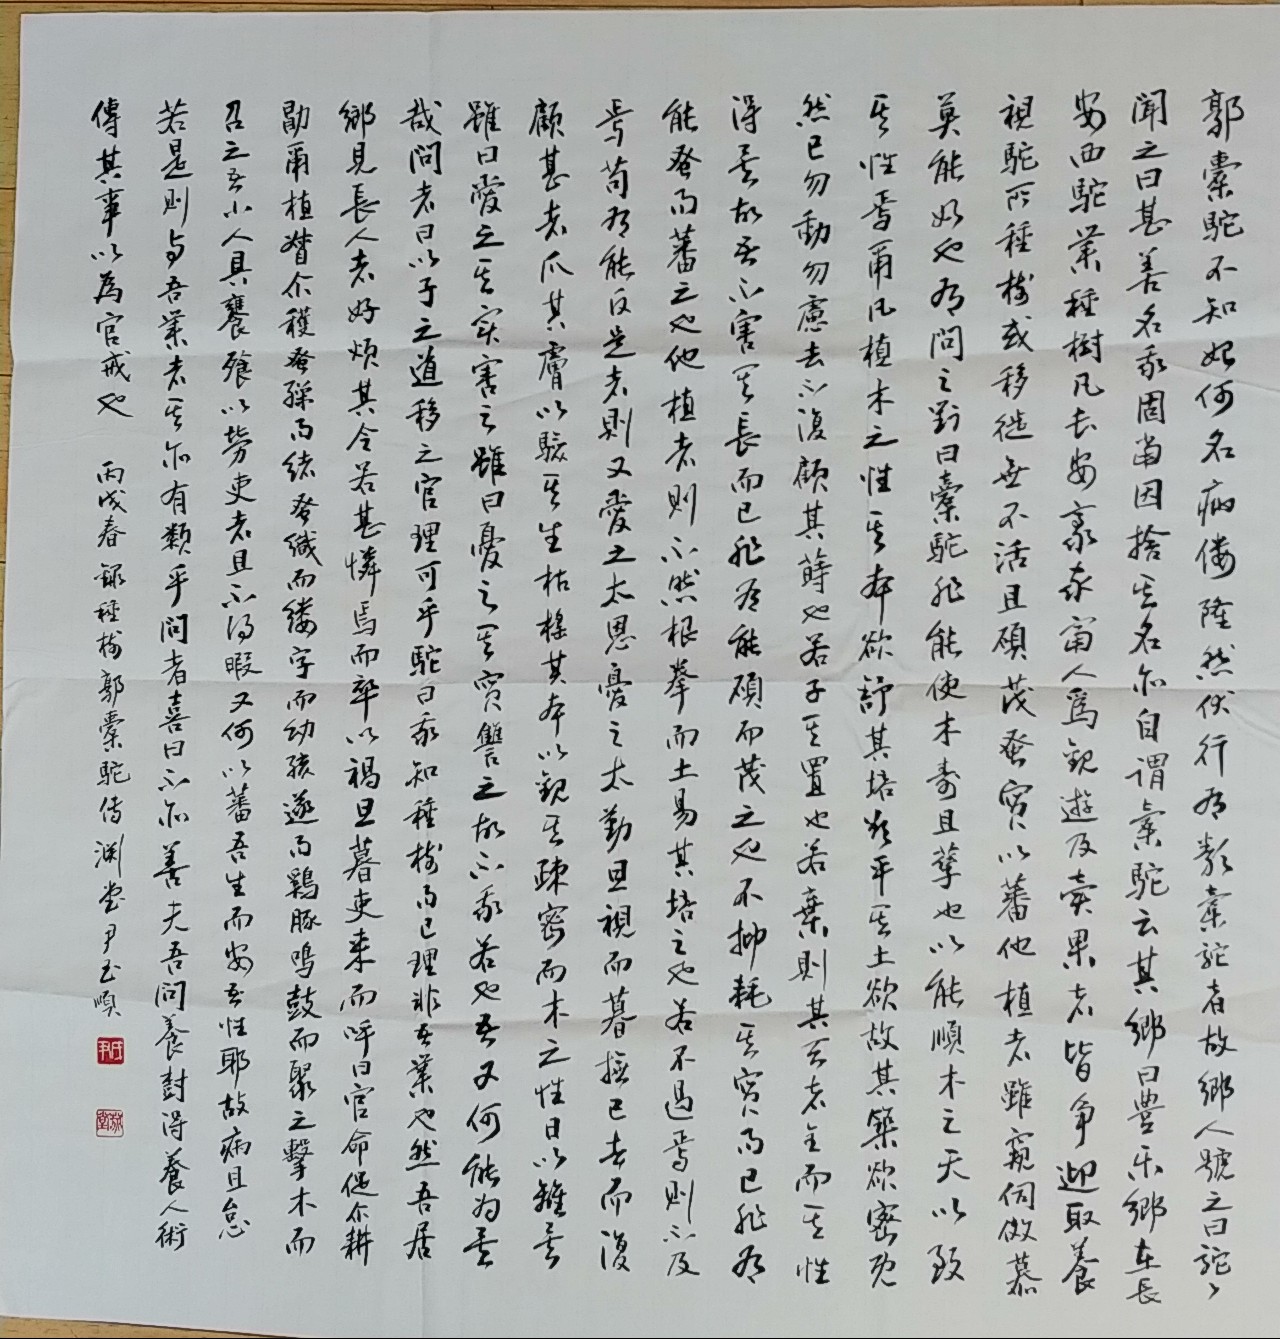 郭橐駝不知始何名病僂隆然伏行有類橐駝者故鄉人號之曰駝駝
聞之曰甚善名我固當因捨其名亦自謂橐駝云其鄉曰豊乐鄉在長
安西駝業種樹凡長安豪家富人為觀遊及賣果者皆争迎取養
視駝所種樹或移徙無不活且碩茂蚤實以蕃他植者雖窺伺傚慕
莫能如也有問之對曰橐駝非能使木壽且孳也以能順木之天以致
其性焉爾凡植木之性其本欲舒其培欲平其土欲故其築欲密既
然已勿動勿慮去不復顧其蒔也若子其置也若棄則其天者全而其性
得矣故吾不害其長而已非有能碩而茂之也不抑耗其實而已非有
能蚤而蕃之也他植者則不然根拳而土易其培之也若不過焉則不及
焉苟有能反是者則又愛之太恩憂之太勤旦視而暮撫已去而復
顧甚者爪其膚以驗其生枯搖其本以觀其疎密而木之性日以離矣
雖曰愛之其实害之雖曰憂之其實讐之故不我若也吾又何能为矣
哉問者曰以子之道移之官理可乎駝曰我知種樹而已理非吾業也然吾居
鄉見長人者好煩其令若甚憐焉而卒以禍旦暮吏来而呼曰官命促尒耕
勖爾植督尒穫蚤繅而緒蚤織而缕字而幼孩遂而鷄豚鸣鼓而聚之擊木而
召之吾小人具饔飱以勞吏者且不得暇又何以蕃吾生而安吾性耶故病且怠
若是則与吾業者其亦有類乎問者喜曰不亦善夫吾問養樹得養人術
傳其事以為官戒也 丙戌春録種樹郭橐駝传 渊堂尹玉順